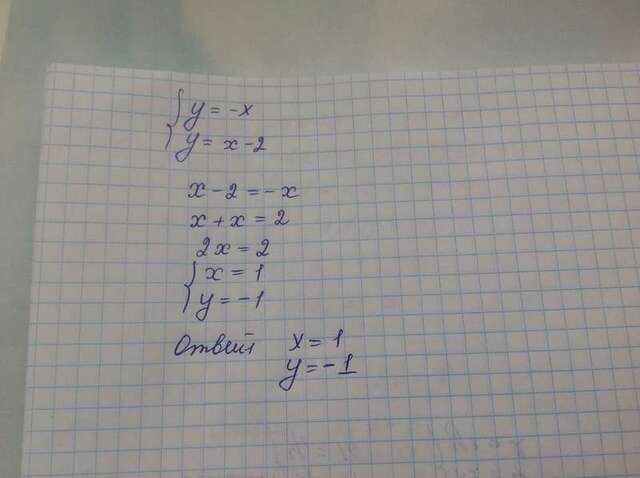 { y = -x
{ y = x - 2
x - 2 = - x
x + x = 2
2x = 2
{ x = 1
{ y = -1
Ответ x = 1
y = -1